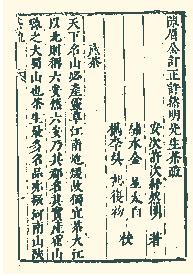 陳眉公訂正許然明先生茶疏
安次許次紓然明 著
繡水金 星太白 校
產茶
天下名山必產靈草江南地煖故獨宜茶大江
以北則稱六安然六安乃其郡名其實產霍山
縣之大蜀山也茶生最多名品亦振河南山陝